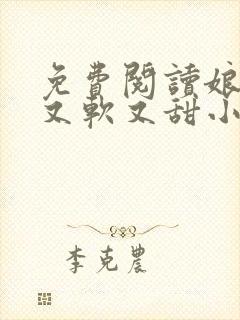 免費閱讀娘
又軟又甜小
李克農